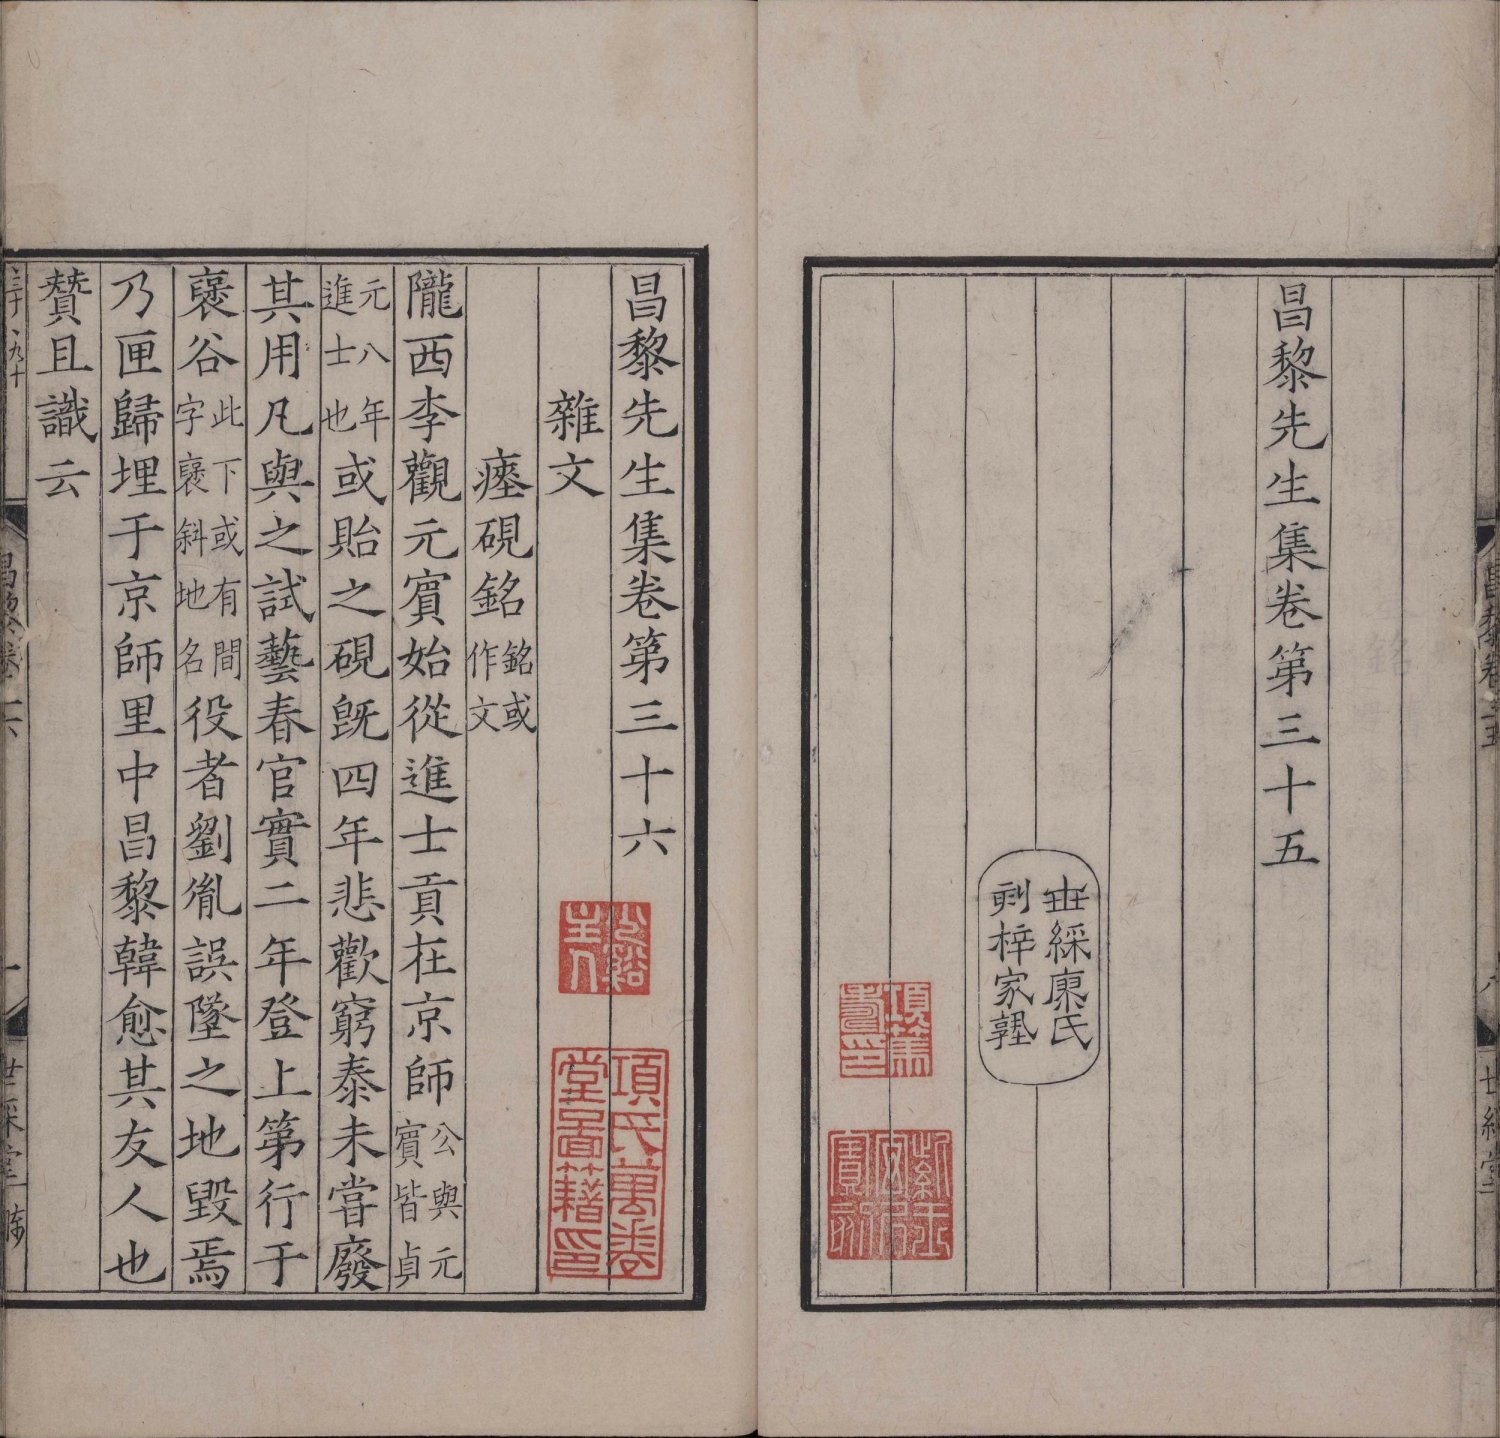 昌黎先生集卷第三十五
世綵廖氏
刻梓家塾
項篤壽印
昌黎先生集卷第三十六
雜文
瘞硯銘銘或作文
隴西李觀元賓始從進士貢在京師公與元賓皆貞
元八年進士也或貽之硯旣四年悲歡窮泰未嘗廢
其用凡與之試藝春官實二年登上第行于
襃谷此下或有間字襃斜地名役者劉胤誤墜之地毀焉
乃匣歸埋于京師里中昌黎韓愈其友人也
贊且識云
項氏萬卷
堂圖籍印